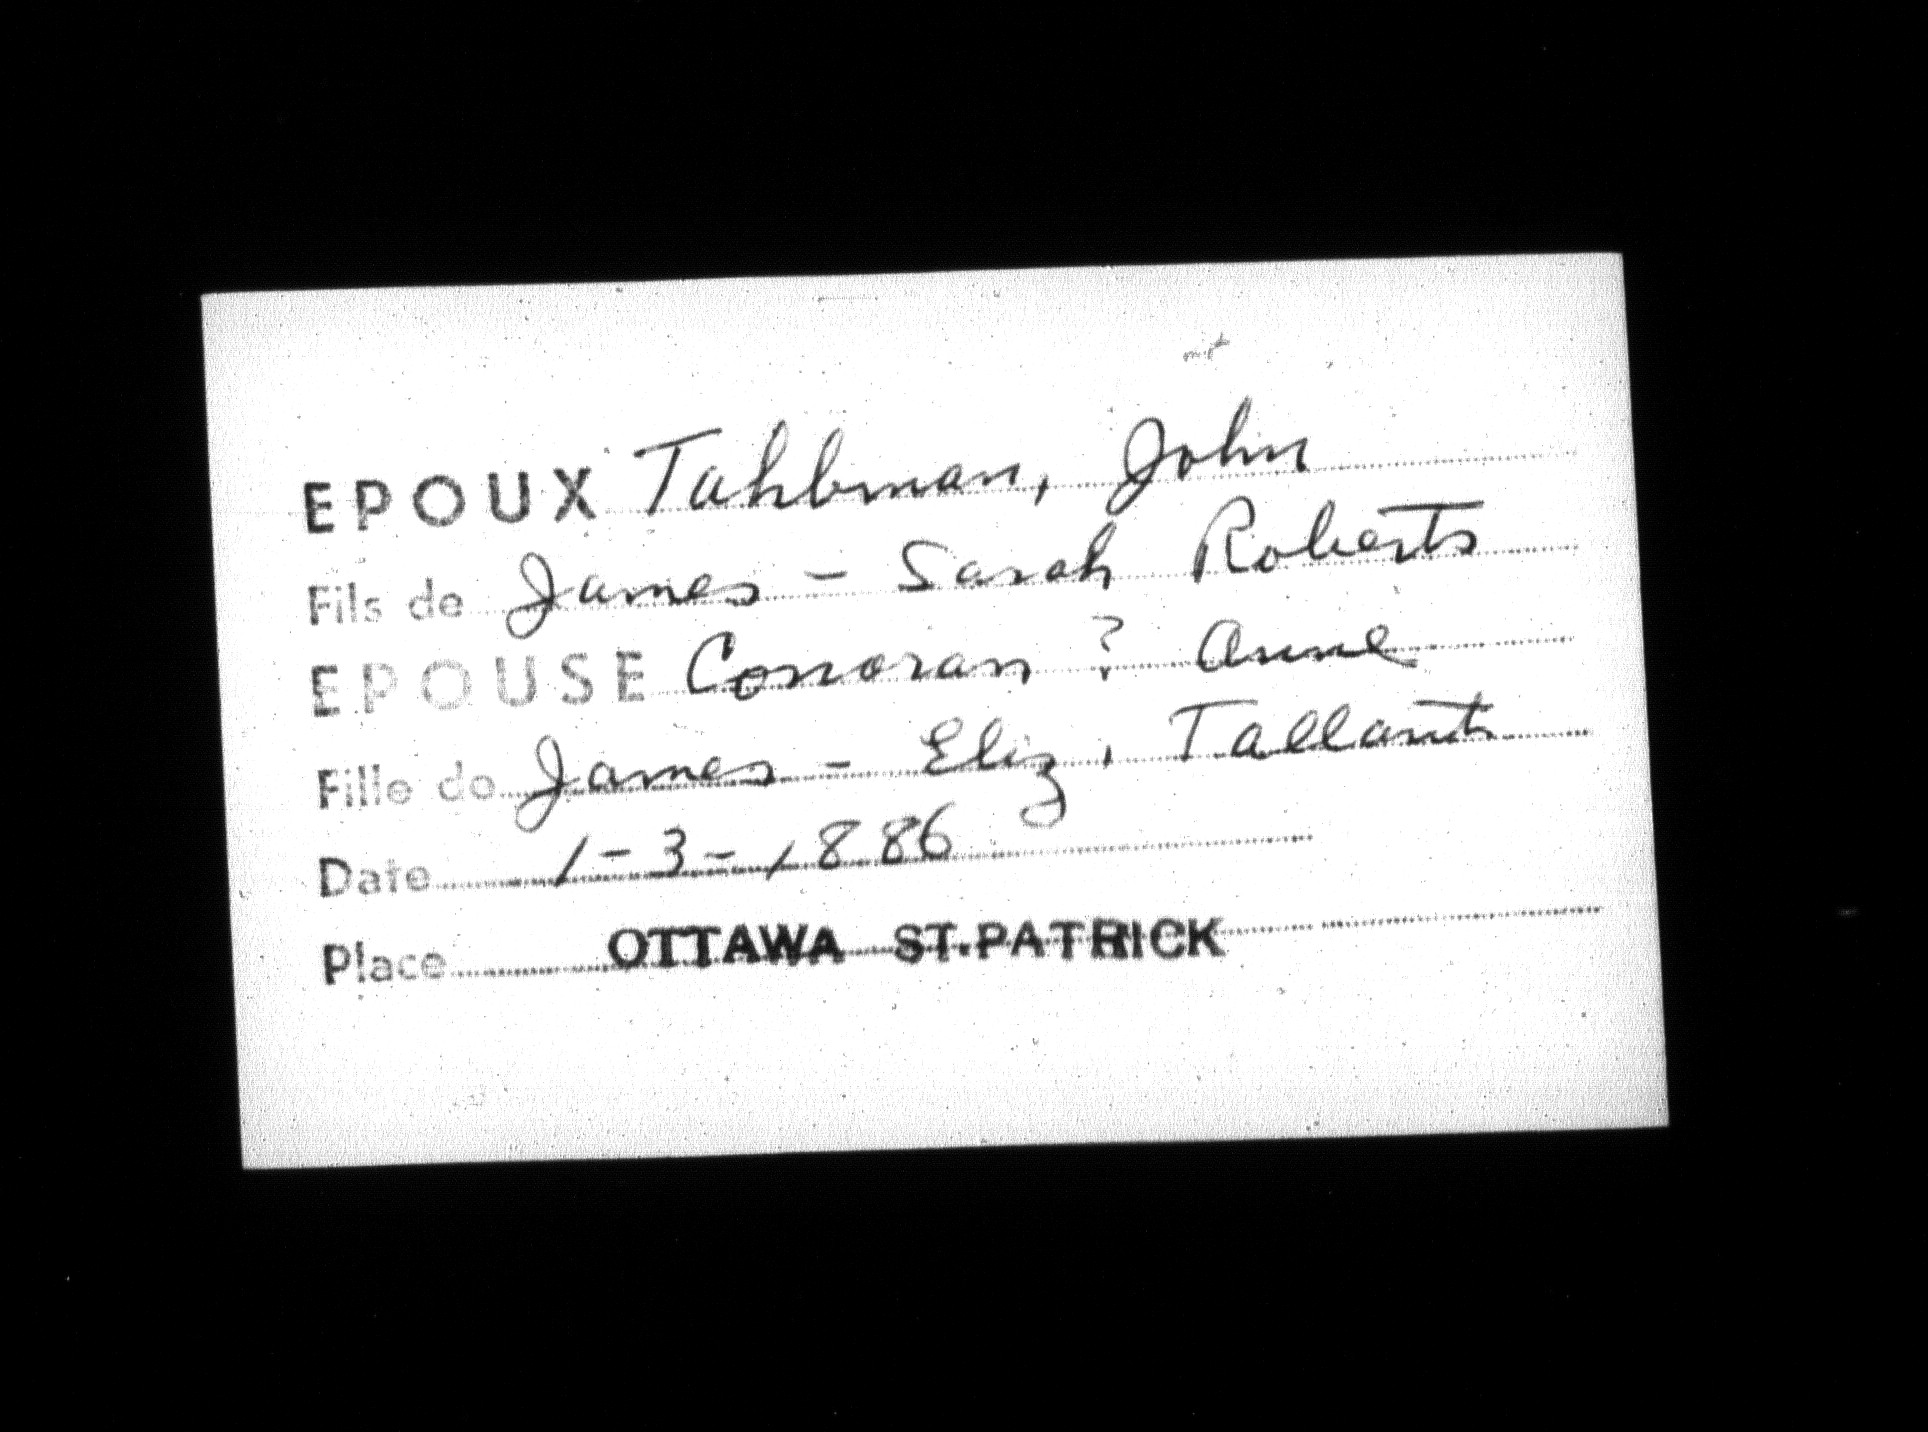 EPOUX Tahbman, John
Fils de James - Sarah Roberts
EPOUSE Conoran ? Anne
Fille de James - Eliz. Tallant
Date 1-3-1886
Place OTTAWA ST. PATRICK